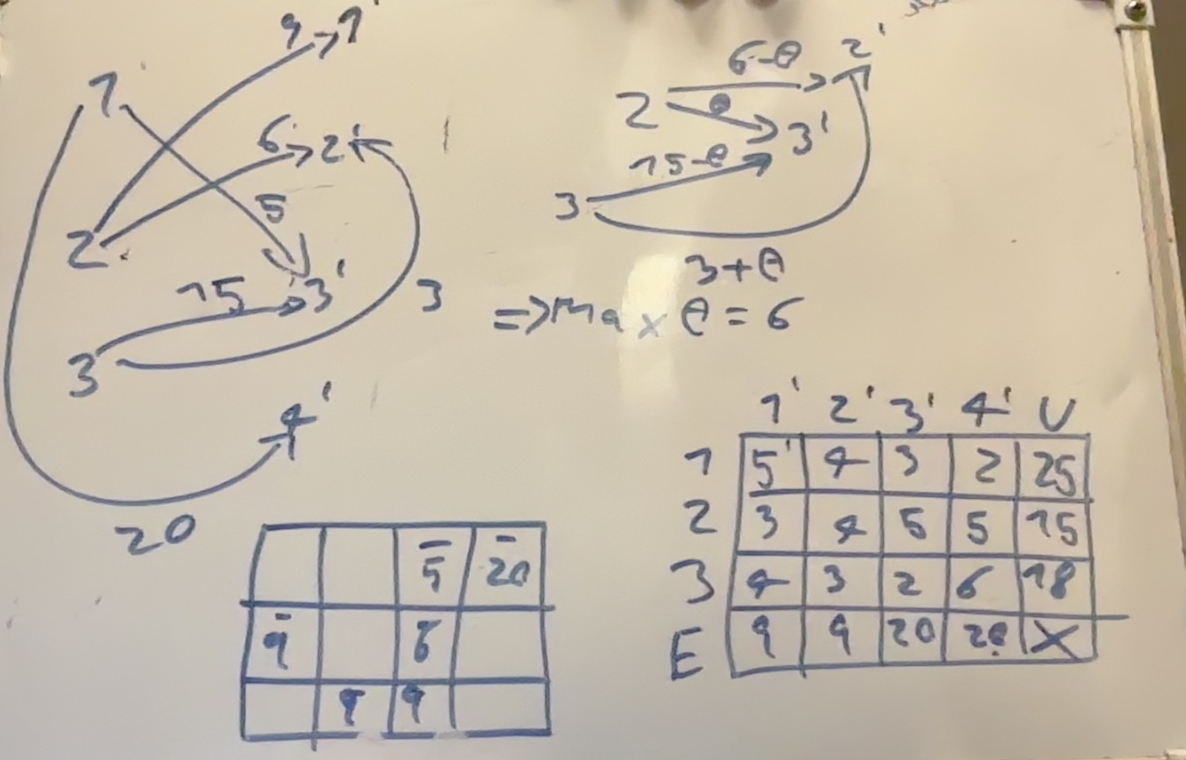 9 1'
1
6 2'
5
2
15 3'
3
3
4'
20
6-θ 2'
2 θ
3'
15-θ
3
3+θ
=> Max θ = 6
5̄ 2̄0̄
9̄ 6
9 9
1' 2' 3' 4' U
1 5 4 3 2 25
2 3 4 5 5 15
3 4 3 2 6 18
E 9 9 20 20 X